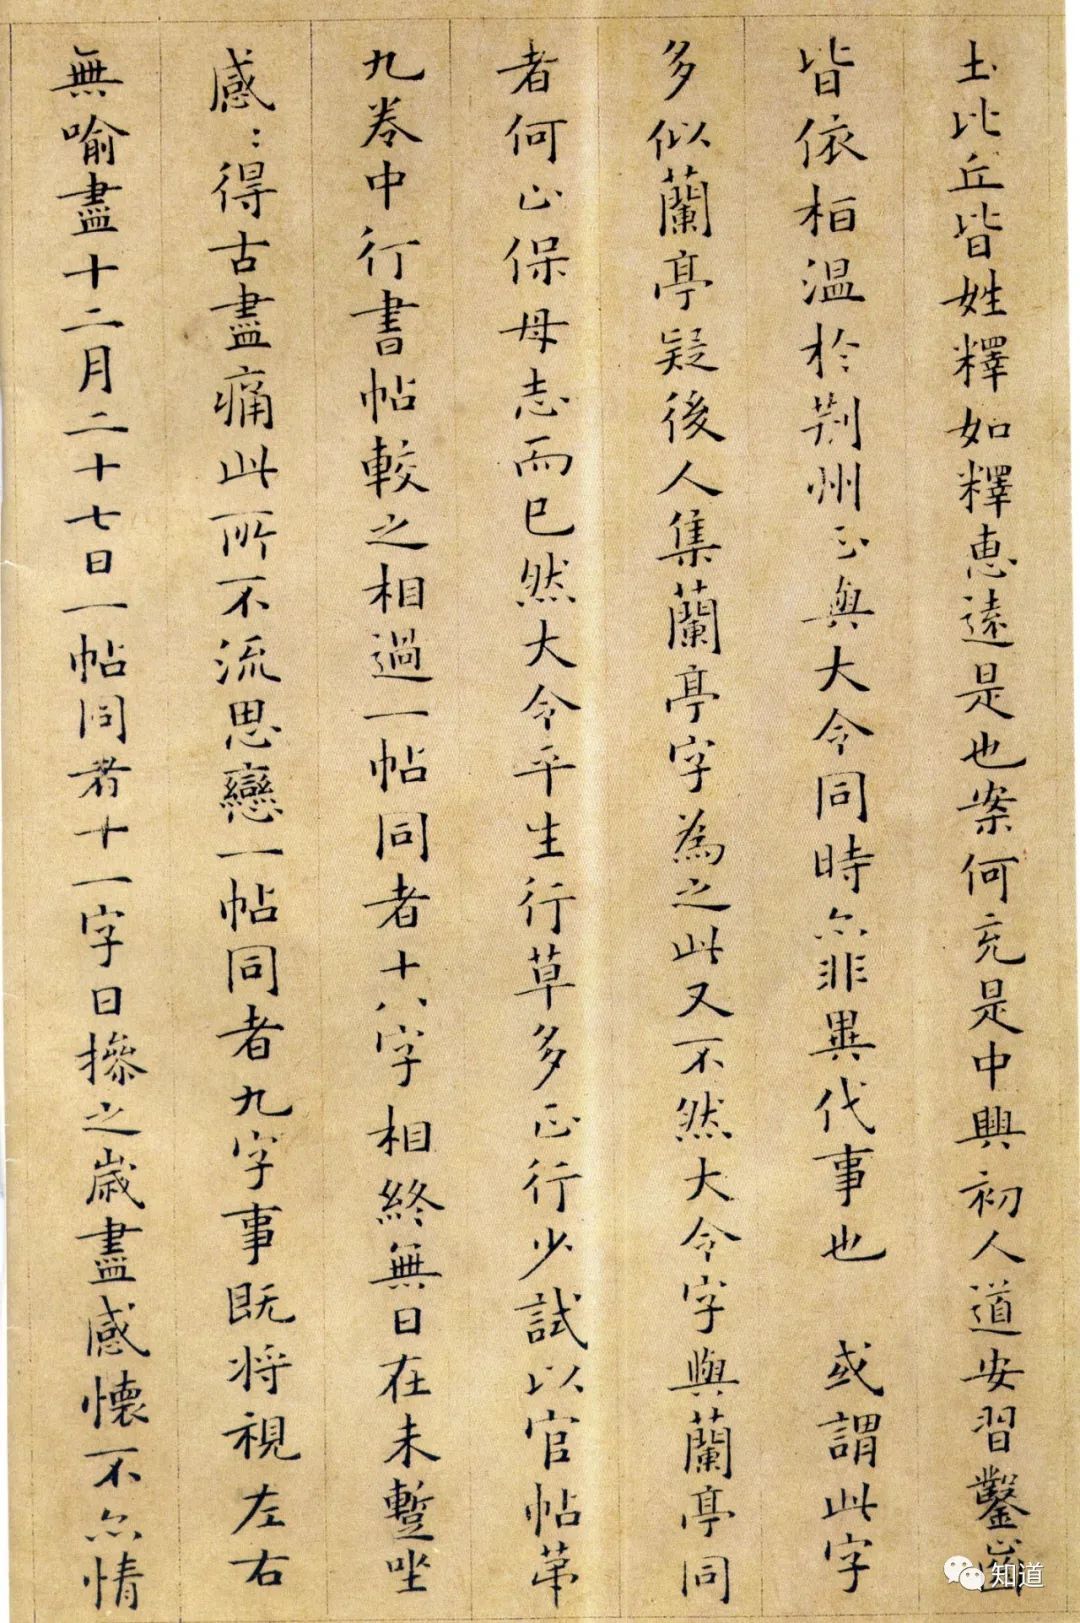 土比丘皆姓釋如釋惠遠是也案何充是中興初人道安習鑿齒
皆依桓温於荆州正與大令同時亦非異代事也 或謂此字
多似蘭亭疑後人集蘭亭字為之此又不然大令字與蘭亭同
者何止保母志而已然大令平生行草多正行少試以官帖苐
九卷中行書帖較之相過一帖同者十八字相終無日在未蹔坐
感:得古盡痛此所不流思戀一帖同者九字事既将視左右
無喻盡十二月二十七日一帖同者十一字日摻之歳盡感懷不亦情
知道